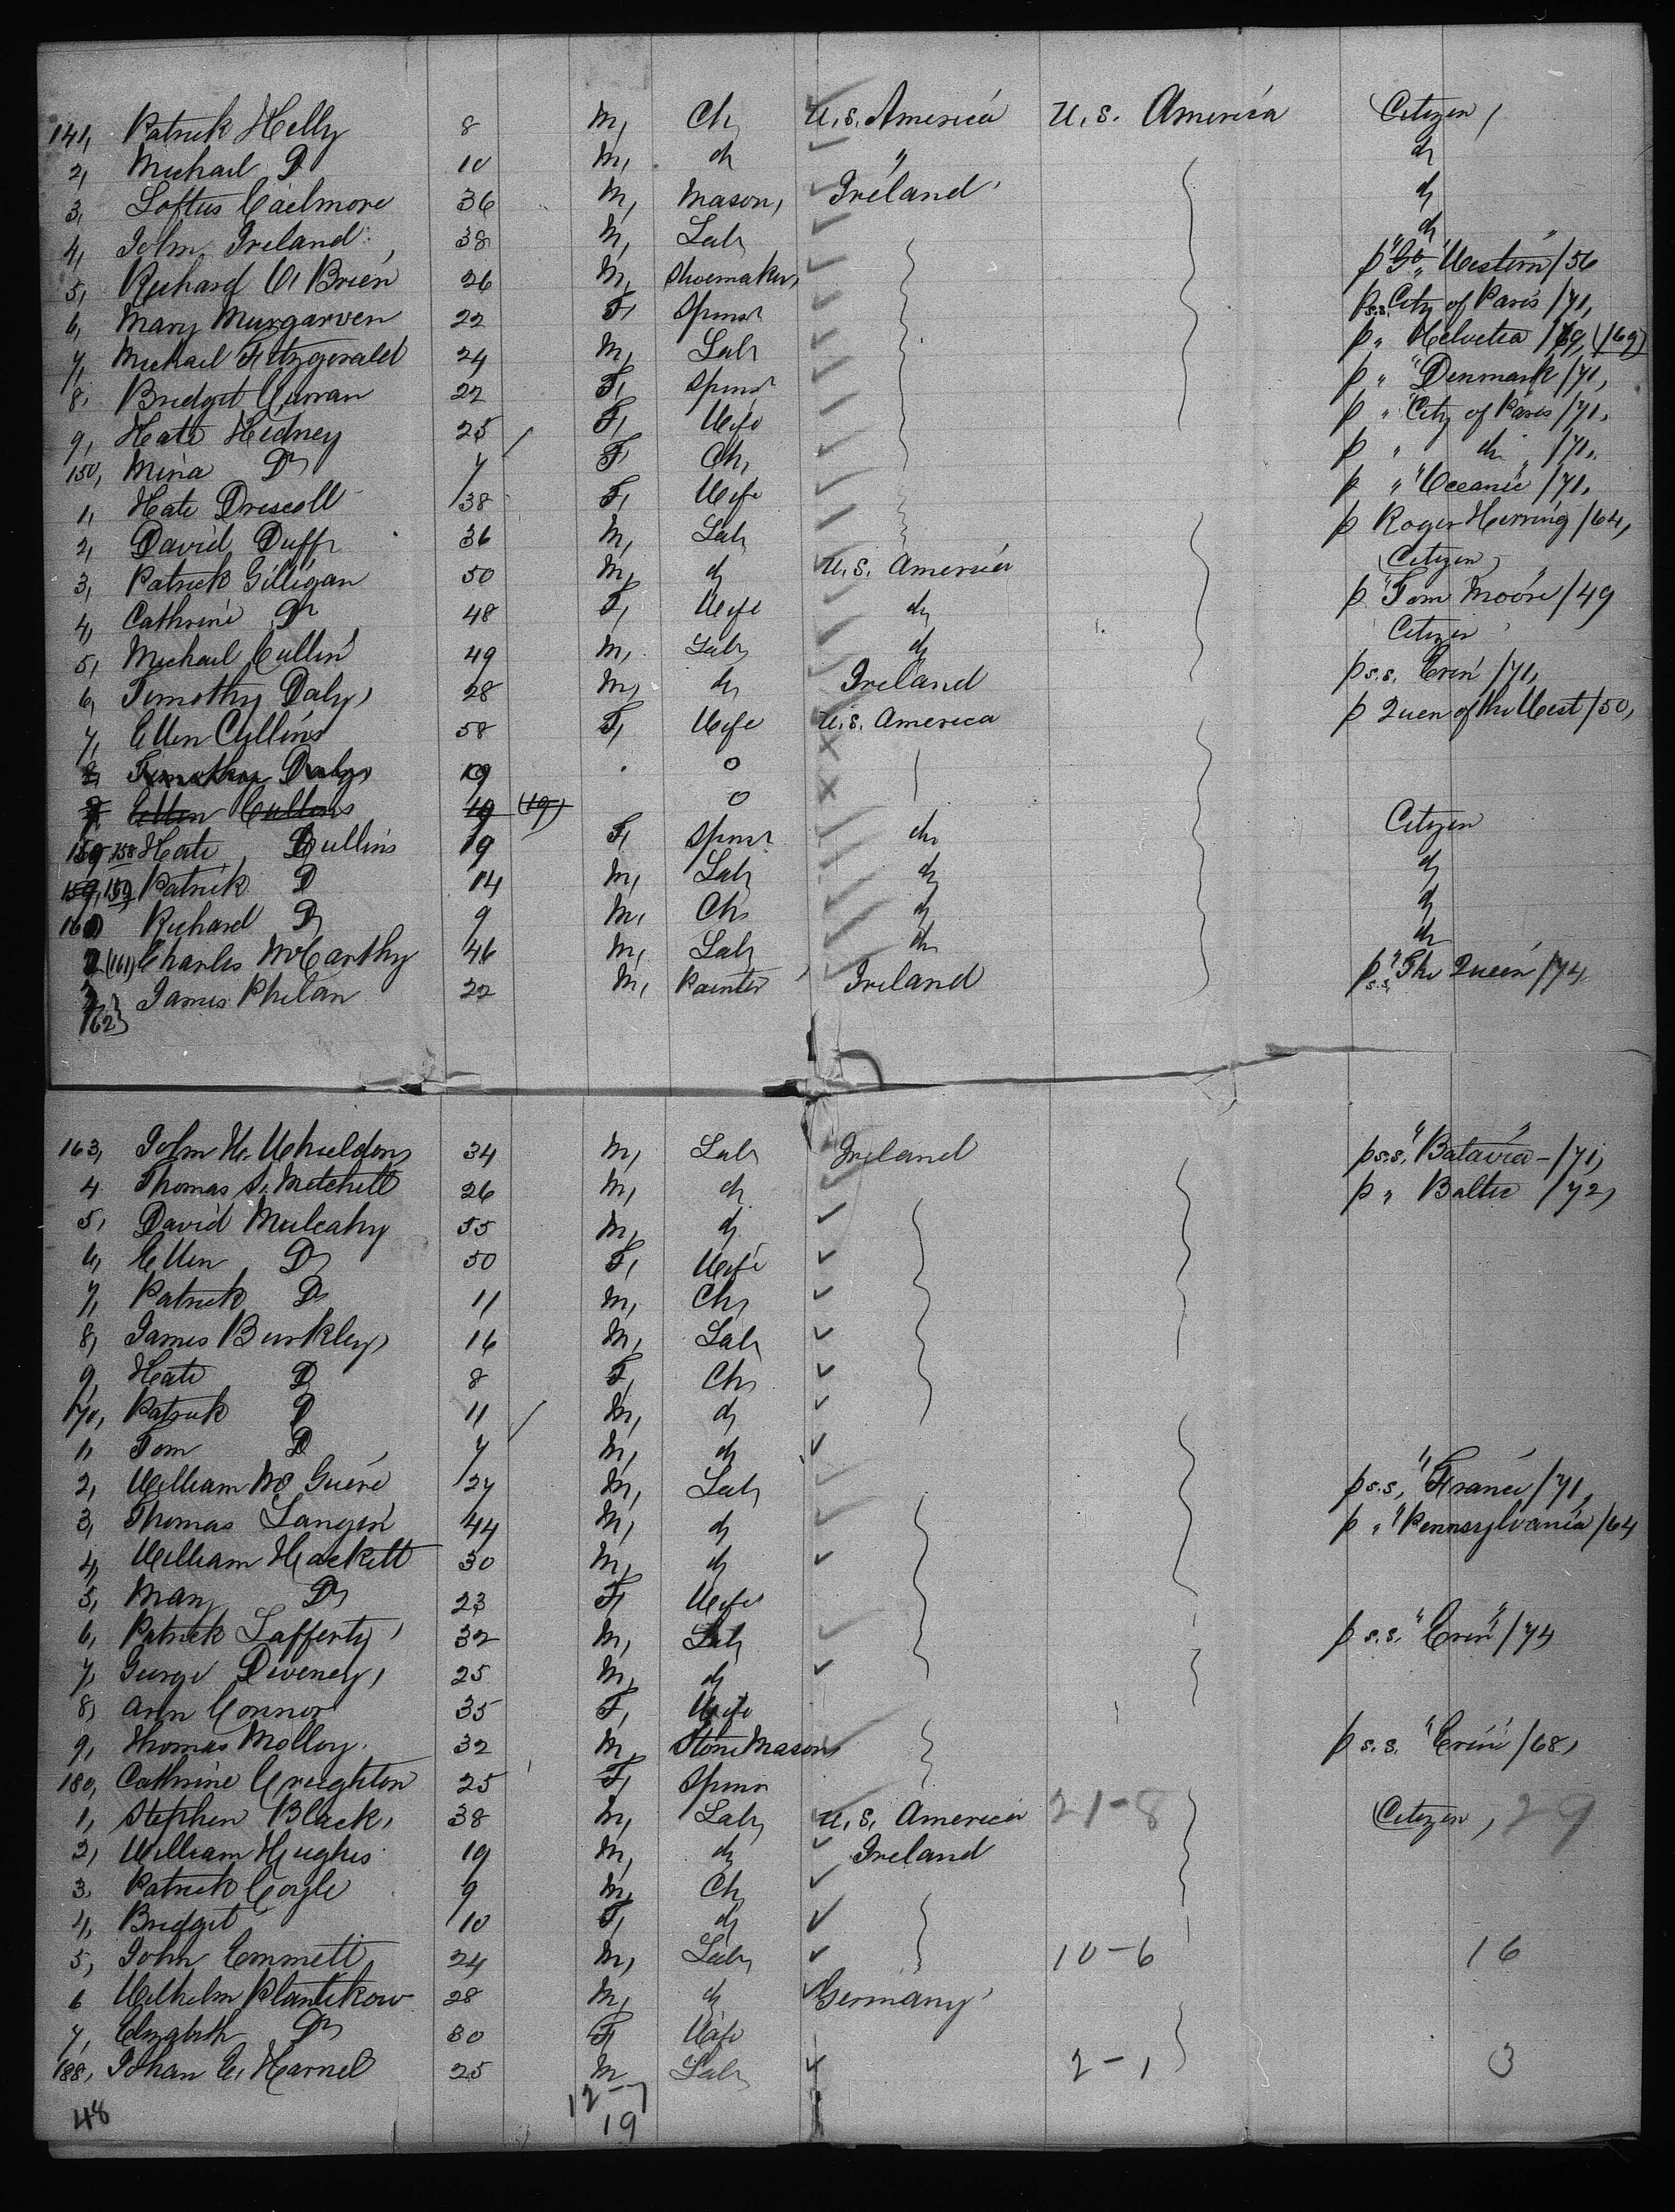 141, Patrick Kelly 8 M, Ch, U.S. America U.S. America Citizen,
2, Michael D 10 M, ch " do
3, Loftus Caelmore 36 M, Mason, Ireland do
4, John Ireland 38 M, Labr do
5, Richard O'Brien 26 M, Shoemaker, p "Go" Western /56
6, Mary Murgarven 22 F, Spinsr p s.s. City of Paris /71,
7, Michael Fitzgerald 24 M, Labr p " Helvetia /69, (/69)
8, Bridget Curran 22 F, Spinsr p " "Denmark /71,
9, Kate Kidney 25 F, Wife p " "City of Paris /71,
150, Mina Do 7 F, Ch, p " do /71,
1, Kate Driscoll 38 F, Wife p " "Oceanic" /71,
2, David Duff, 36 M, Labr p Roger Herring /64,
3, Patrick Gilligan 50 M, do U.S. America Citizen,
4, Cathrine Do 48 F, Wife do p "Tom Moore" /49
5, Michael Cullin 49 M, Labr do Citizen
6, Timothy Daly, 28 M, do Ireland p s.s. Erin /71,
7, Ellen Cullins 58 F, Wife U.S. America p Queen of the West /50,
8, Timothy Daly, 19 o
9, Ellen Cullens 19 (19) o
159, 158 Kate, Cullins 19 F, Spinsr do Citizen
159, 159 Patrick D 14 M, Labr do do
160 Richard D 9 M, Ch, do do
2 (161) Charles McCarthy 46 M, Labr do do
3, James Phelan 22 M, Painter Ireland p s.s. "The Queen /74,
162}
163, John H. Wheeldon, 34 M, Labr Ireland p s.s. "Batavia" - /71,
4 Thomas S. Mitchell 26 M, do p " Baltic /72,
5, David Mulcahy 55 M, do
6, Ellen Do 50 F, Wife
7, Patrick Do 11 M, Ch,
8, James Burkley, 16 M, Labr
9, Kate D 8 F, Ch,
170, Patrick D 11 M, do
1, Tom D 7 M, do
2, William McGuire 27 M, Labr p s.s, "France /71,
3, Thomas Langen 44 M, do p " "Pennsylvania /64
4, William Hackett 30 M, do
5, Mary Do 23 F, Wife
6, Patrick Lafferty, 32 M, Labr p s.s. "Erin" /74
7, George Diveney, 25 M, do
8, Ann Connor 35 F, Wife
9, Thomas Molloy. 32 M, Stone Mason, p s.s. "Erin" /68,
180, Cathrine Creighton 25 F, Spinsr
1, Stephen Black, 38 M, Labr U.S. America 21-8 Citizen, 29
2, William Hughes 19 M, do Ireland
3, Patrick Coyle 9 M, Ch,
4, Bridget 10 F, do
5, John Emmett 24 M, Labr 10-6 16
6 Wilhelm Plantikow 28 M, do Germany
7, Elizabeth Do 30 F, Wife
188, Johan C. Harnel 25 M Labr 2-1 3
48 12-7
19